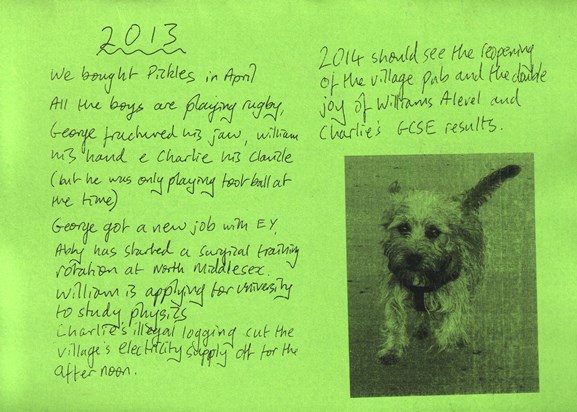 2013
We bought Pickles in April
All the boys are playing rugby,
George fractured his jaw, William
his hand & Charlie his clavicle
(but he was only playing football at
the time)
George got a new job with EY.
Abby has started a surgical training
rotation at North Middlesex.
William is applying for university
to study physics
Charlie's illegal logging cut the
village's electricity supply off for the
afternoon.
2014 should see the reopening
of the village pub and the double
joy of Williams A level and
Charlie's GCSE results.